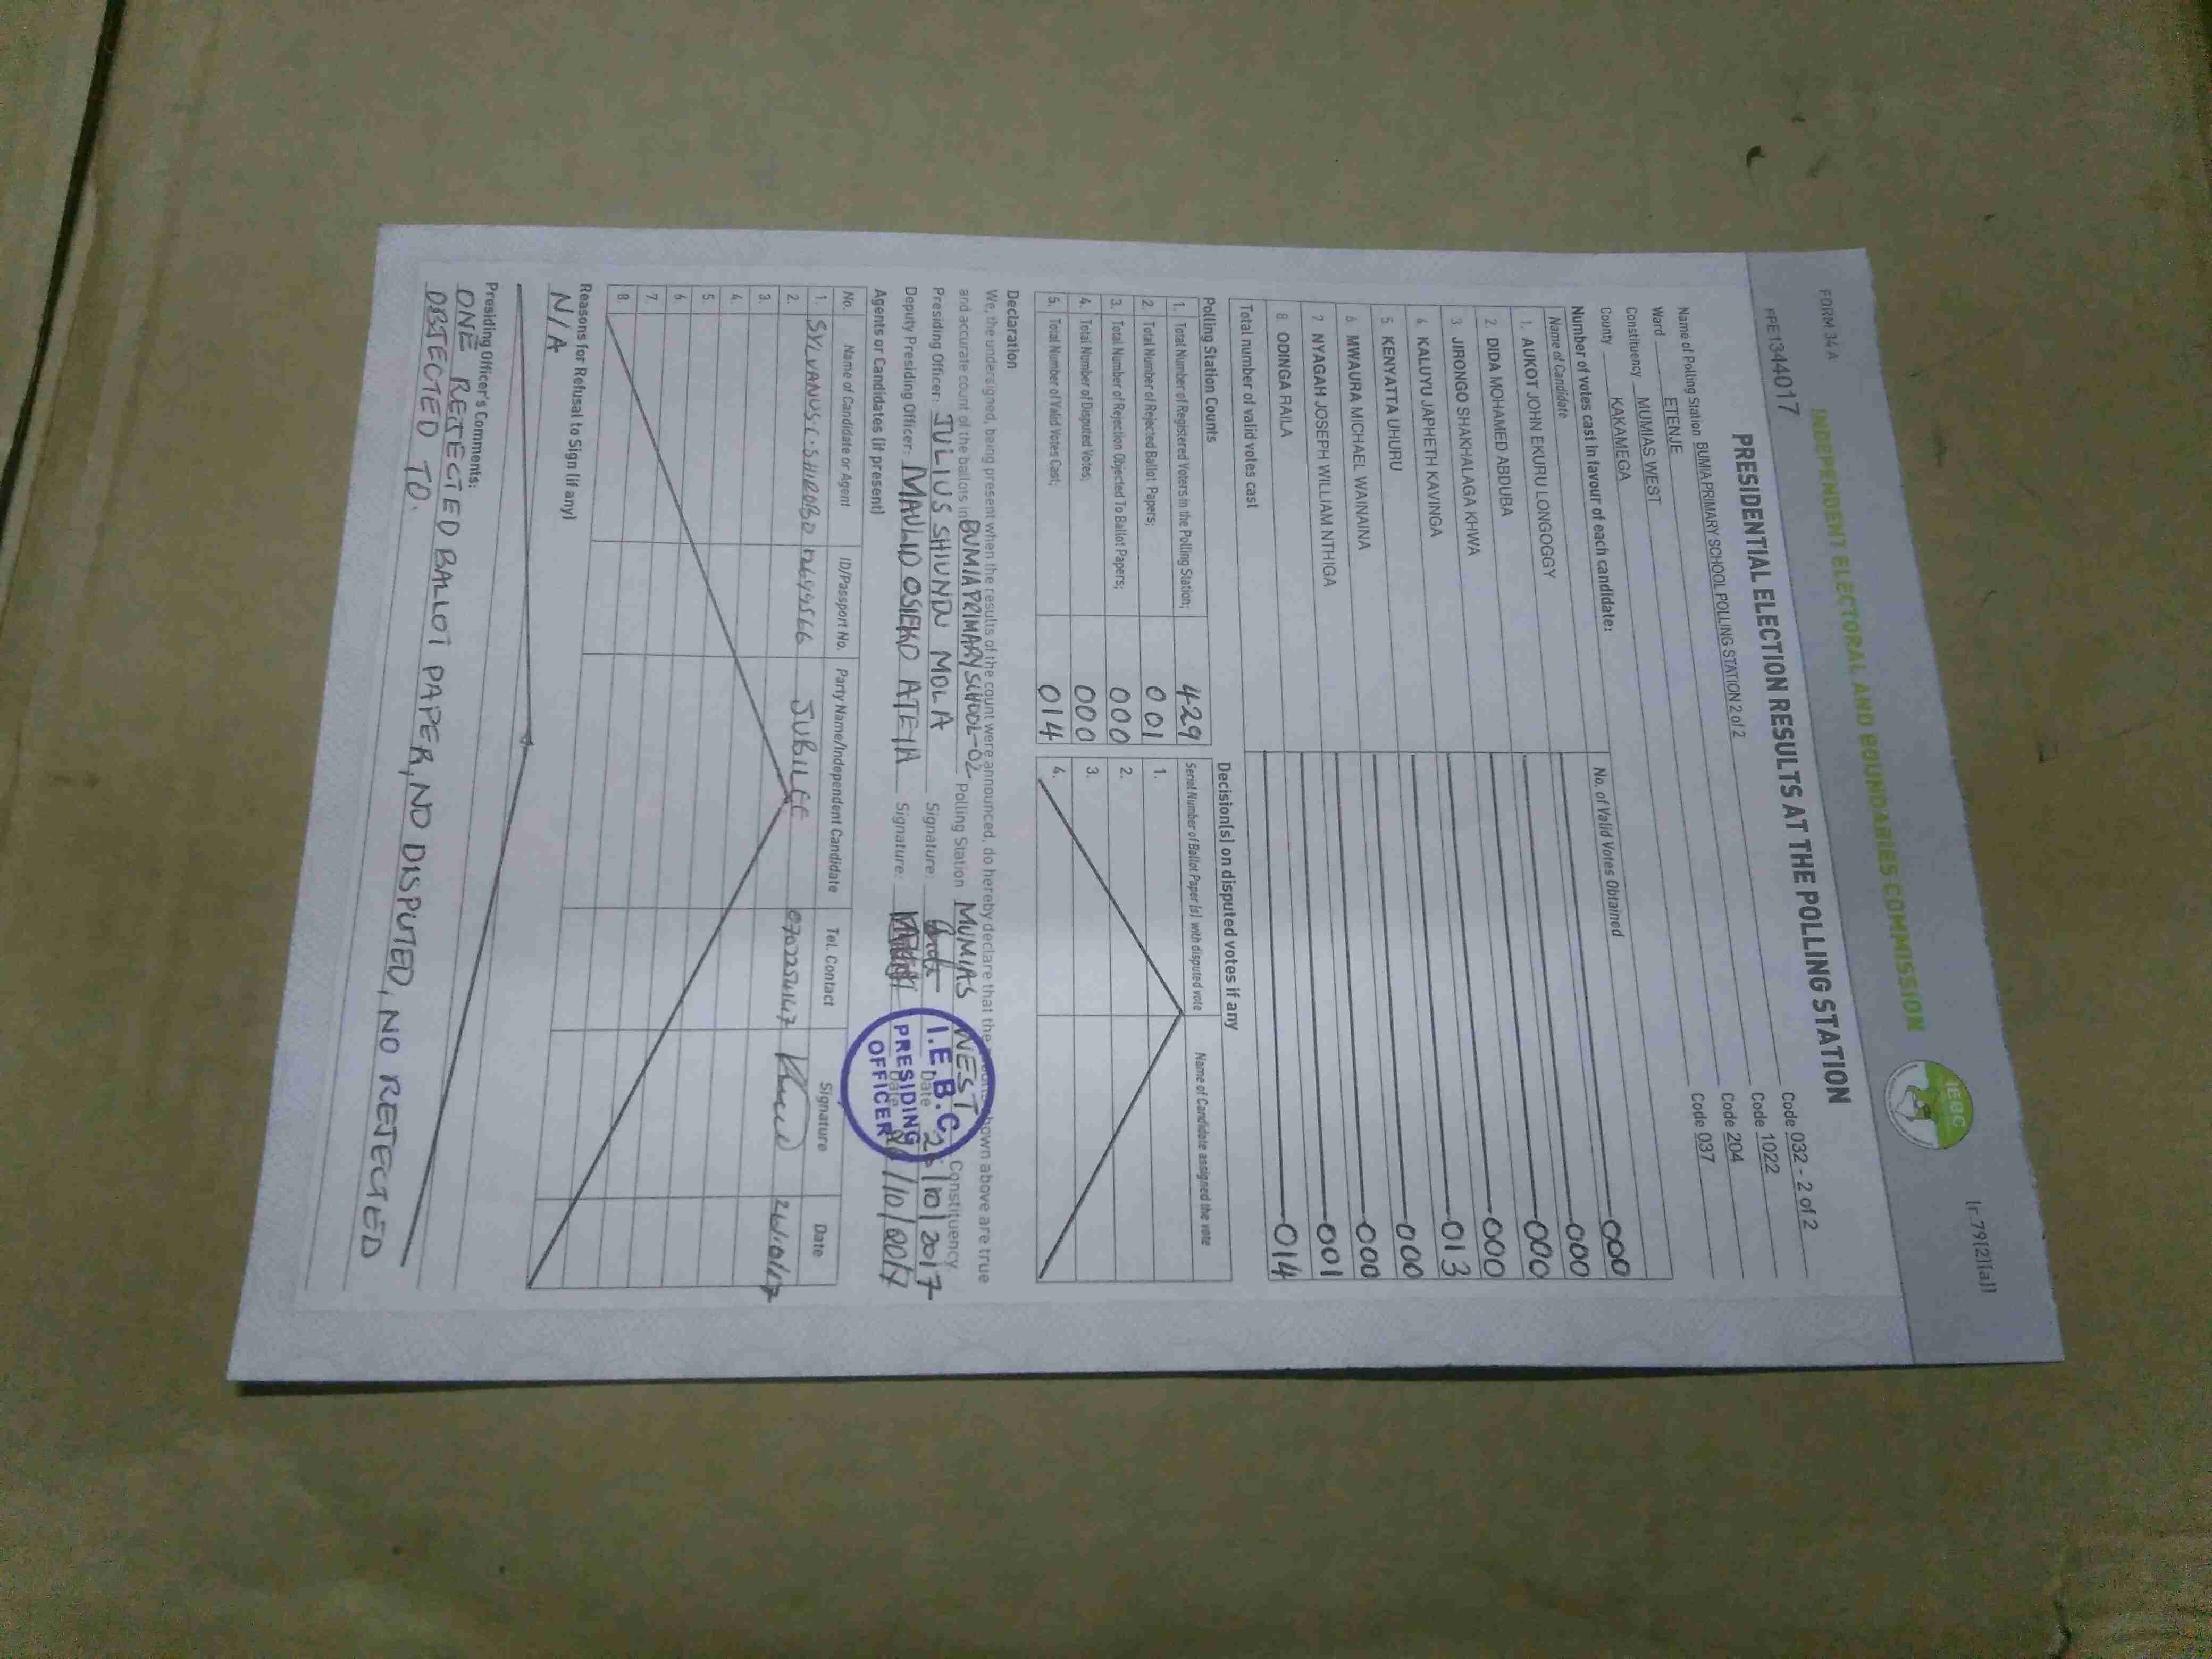 FORM 34 A
(r.79(2)(a))
INDEPENDENT ELECTORAL AND BOUNDARIES COMMISSION
IEBC
PRE1344017
PRESIDENTIAL ELECTION RESULTS AT THE POLLING STATION
Name of Polling Station BUMIA PRIMARY SCHOOL POLLING STATION 2 of 2 Code 032 - 2 of 2
Ward ETENJE Code 1022
Constituency MUMIAS WEST Code 204
County KAKAMEGA Code 037
Number of votes cast in favour of each candidate:
Name of Candidate No. of Valid Votes Obtained
1. AUKOT JOHN EKURU LONGOGGY 000
2 DIDA MOHAMED ABDUBA 000
3 JIRONGO SHAKHALAGA KHWA 000
4 KALUYU JAPHETH KAVINGA 000
5 KENYATTA UHURU 013
6 MWAURA MICHAEL WAINAINA 000
7 NYAGAH JOSEPH WILLIAM NTHIGA 000
8 ODINGA RAILA 001
Total number of valid votes cast 014
Polling Station Counts
1. Total Number of Registered Voters in the Polling Station; 429
2. Total Number of Rejected Ballot Papers; 001
3. Total Number of Rejection Objected To Ballot Papers; 000
4. Total Number of Disputed Votes; 000
5. Total Number of Valid Votes Cast; 014
Decision(s) on disputed votes if any
Serial Number of Ballot Paper (s) with disputed vote Name of Candidate assigned the vote
1.
2.
3.
4.
Declaration
We, the undersigned, being present when the results of the count were announced, do hereby declare that the shown above are true
and accurate count of the ballots in BUMIA PRIMARY SCHOOL-02 Polling Station MUMIAS WEST Constituency
Presiding Officer: JULIUS SHIUNDU MOLA Signature: Date 26/10/2017
Deputy Presiding Officer: MAULID OSIEKO ATETA Signature: Date 26/10/2017
I.E.B.C
PRESIDING
OFFICER
Agents or Candidates (if present)
No. Name of Candidate or Agent ID/Passport No. Party Name/Independent Candidate Tel. Contact Signature Date
1. SYLVANUS JUBILEE
2.
3.
4.
5.
6
7.
8.
Reasons for Refusal to Sign (if any)
N/A
Presiding Officer's Comments:
ONE REJECTED BALLOT PAPER, NO DISPUTED, NO REJECTED
OBJECTED TO.